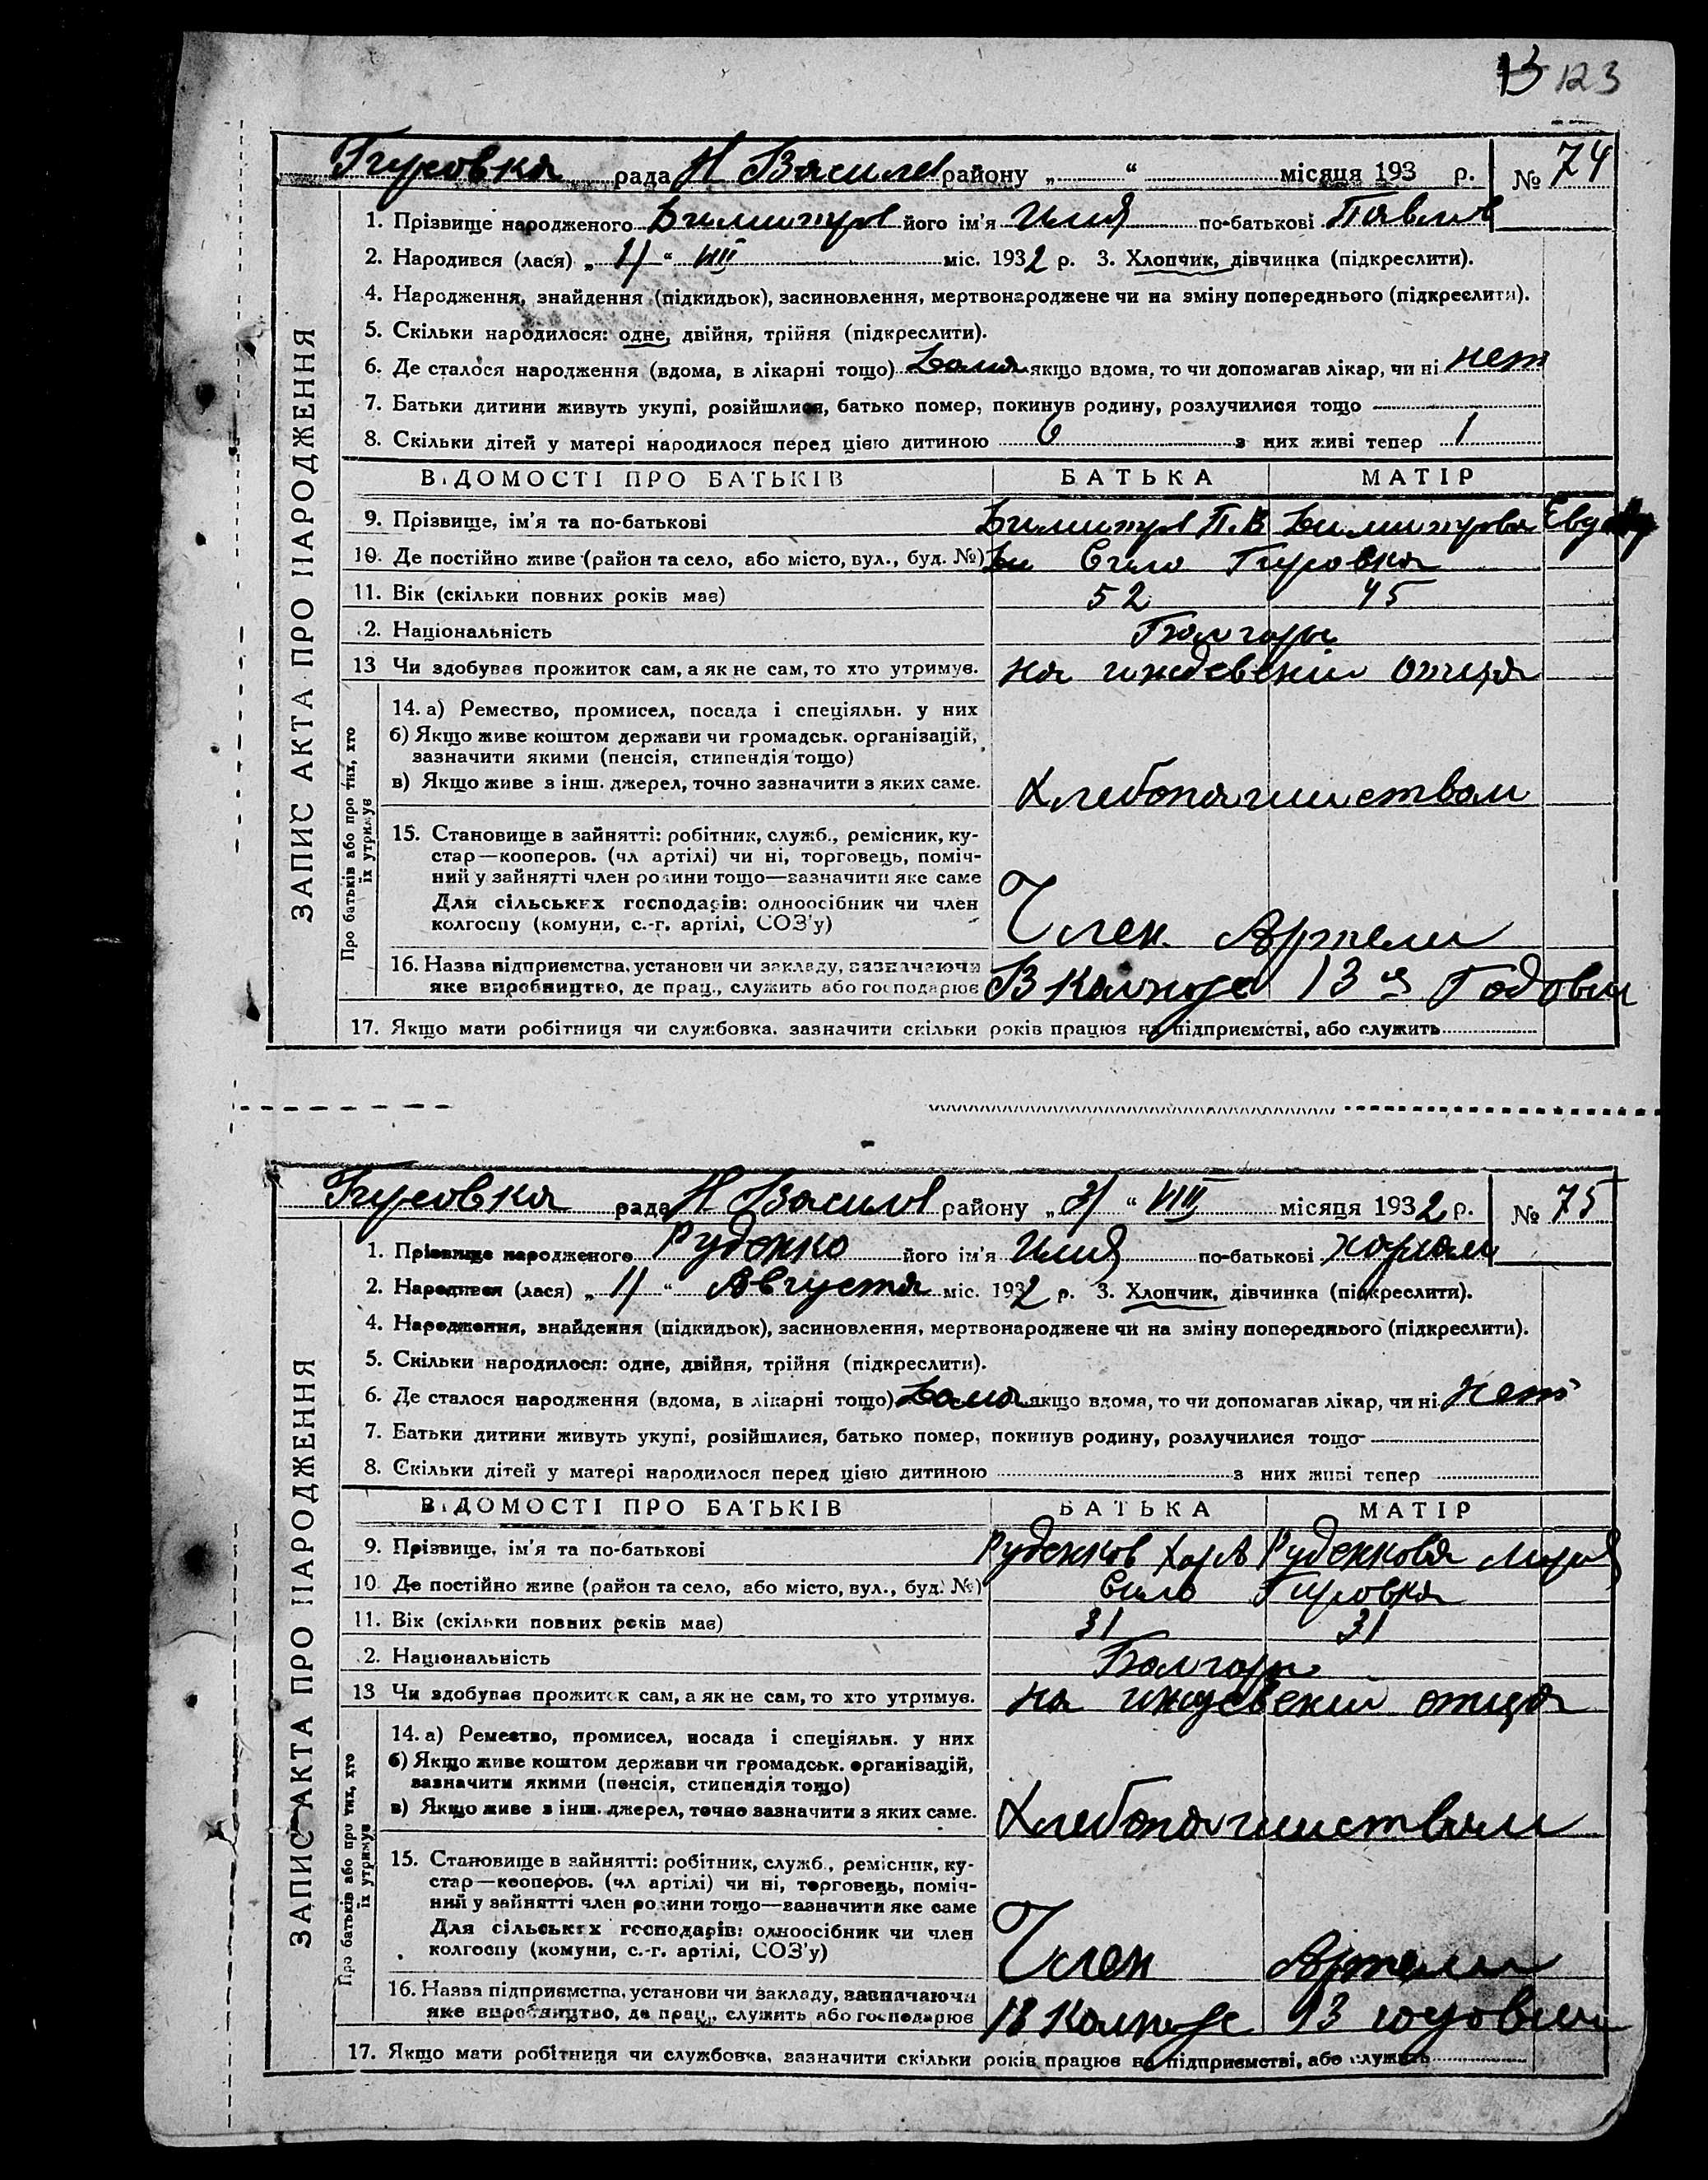 123
Гировка рада Н Василев району „ “ місяця 193 р. № 74
ЗАПИС АКТА ПРО НАРОДЖЕННЯ
1. Прізвище народженого його ім'я Илия по-батькові Павлов
2. Народився (лася) „ 1/ “ VIII міс. 1932 р. 3. Хлопчик, дівчинка (підкреслити).
4. Народження, знайдення (підкидьок), засиновлення, мертвонароджене чи на зміну попереднього (підкреслити).
5. Скільки народилося: одне, двійня, трійня (підкреслити).
6. Де сталося народження (вдома, в лікарні тощо) Дома якщо вдома, то чи допомагав лікар, чи ні нет
7. Батьки дитини живуть укупі, розійшлися, батько помер, покинув родину, розлучилися тощо
8. Скільки дітей у матері народилося перед цією дитиною 6 з них живі тепер 1
ВІДОМОСТІ ПРО БАТЬКІВ БАТЬКА МАТІР
9. Прізвище, ім'я та по-батькові
10. Де постійно живе (район та село, або місто, вул., буд. №) Село Гировка
11. Вік (скільки повних років має) 52 45
2. Національність Болгары
13 Чи здобував прожиток сам, а як не сам, то хто утримує. на иждевении отца
Про батьків або про тих, хто
їх утримує
14. а) Ремество, промисел, посада і спеціяльн. у них
б) Якщо живе коштом держави чи громадськ. організацій,
зазначити якими (пенсія, стипендія тощо)
в) Якщо живе з інш. джерел, точно зазначити з яких саме. Хлебопашеством
15. Становище в зайнятті: робітник, служб., ремісник, ку-
стар—кооперов. (чл артілі) чи ні, торговець, поміч-
ний у зайнятті член родини тощо—зазначити яке саме
Для сільських господарів: одноосібник чи член
колгоспу (комуни, с.-г. артілі, СОЗ'у) Член Артели
16. Назва підприємства, установи чи закладу, зазначаючи
яке виробництво, де прац., служить або господарює В Колхозе 13 я Годовщи
17. Якщо мати робітниця чи службовка, зазначити скільки років працює на підприємстві, або служить
Гировка рада Н Василев району „ 3/ “ VIII місяця 1932 р. № 75
ЗАПИС АКТА ПРО НАРОДЖЕННЯ
1. Прізвище народженого Руденко його ім'я Илия по-батькові Харлам
2. Народився (лася) „ 1/ “ Августа міс. 1932 р. 3. Хлопчик, дівчинка (підкреслити).
4. Народження, знайдення (підкидьок), засиновлення, мертвонароджене чи на зміну попереднього (підкреслити).
5. Скільки народилося: одне, двійня, трійня (підкреслити).
6. Де сталося народження (вдома, в лікарні тощо) Дома якщо вдома, то чи допомагав лікар, чи ні нет
7. Батьки дитини живуть укупі, розійшлися, батько помер, покинув родину, розлучилися тощо
8. Скільки дітей у матері народилося перед цією дитиною з них живі тепер
ВІДОМОСТІ ПРО БАТЬКІВ БАТЬКА МАТІР
9. Прізвище, ім'я та по-батькові Руденков Руденкова
10. Де постійно живе (район та село, або місто, вул., буд. №) Село Гировка
11. Вік (скільки повних років має) 31 31
2. Національність Болгары
13 Чи здобував прожиток сам, а як не сам, то хто утримує. на отца
Про батьків або про тих, хто
їх утримує
14. а) Ремество, промисел, посада і спеціяльн. у них
б) Якщо живе коштом держави чи громадськ. організацій,
зазначити якими (пенсія, стипендія тощо)
в) Якщо живе з інш. джерел, точно зазначити з яких саме. Хлебопашеством
15. Становище в зайнятті: робітник, служб., ремісник, ку-
стар—кооперов. (чл артілі) чи ні, торговець, поміч-
ний у зайнятті член родини тощо—зазначити яке саме
Для сільських господарів: одноосібник чи член
колгоспу (комуни, с.-г. артілі, СОЗ'у) Член Артели
16. Назва підприємства, установи чи закладу, зазначаючи
яке виробництво, де прац., служить або господарює В Колхозе 13 годовщи
17. Якщо мати робітниця чи службовка, зазначити скільки років працює на підприємстві, або служить